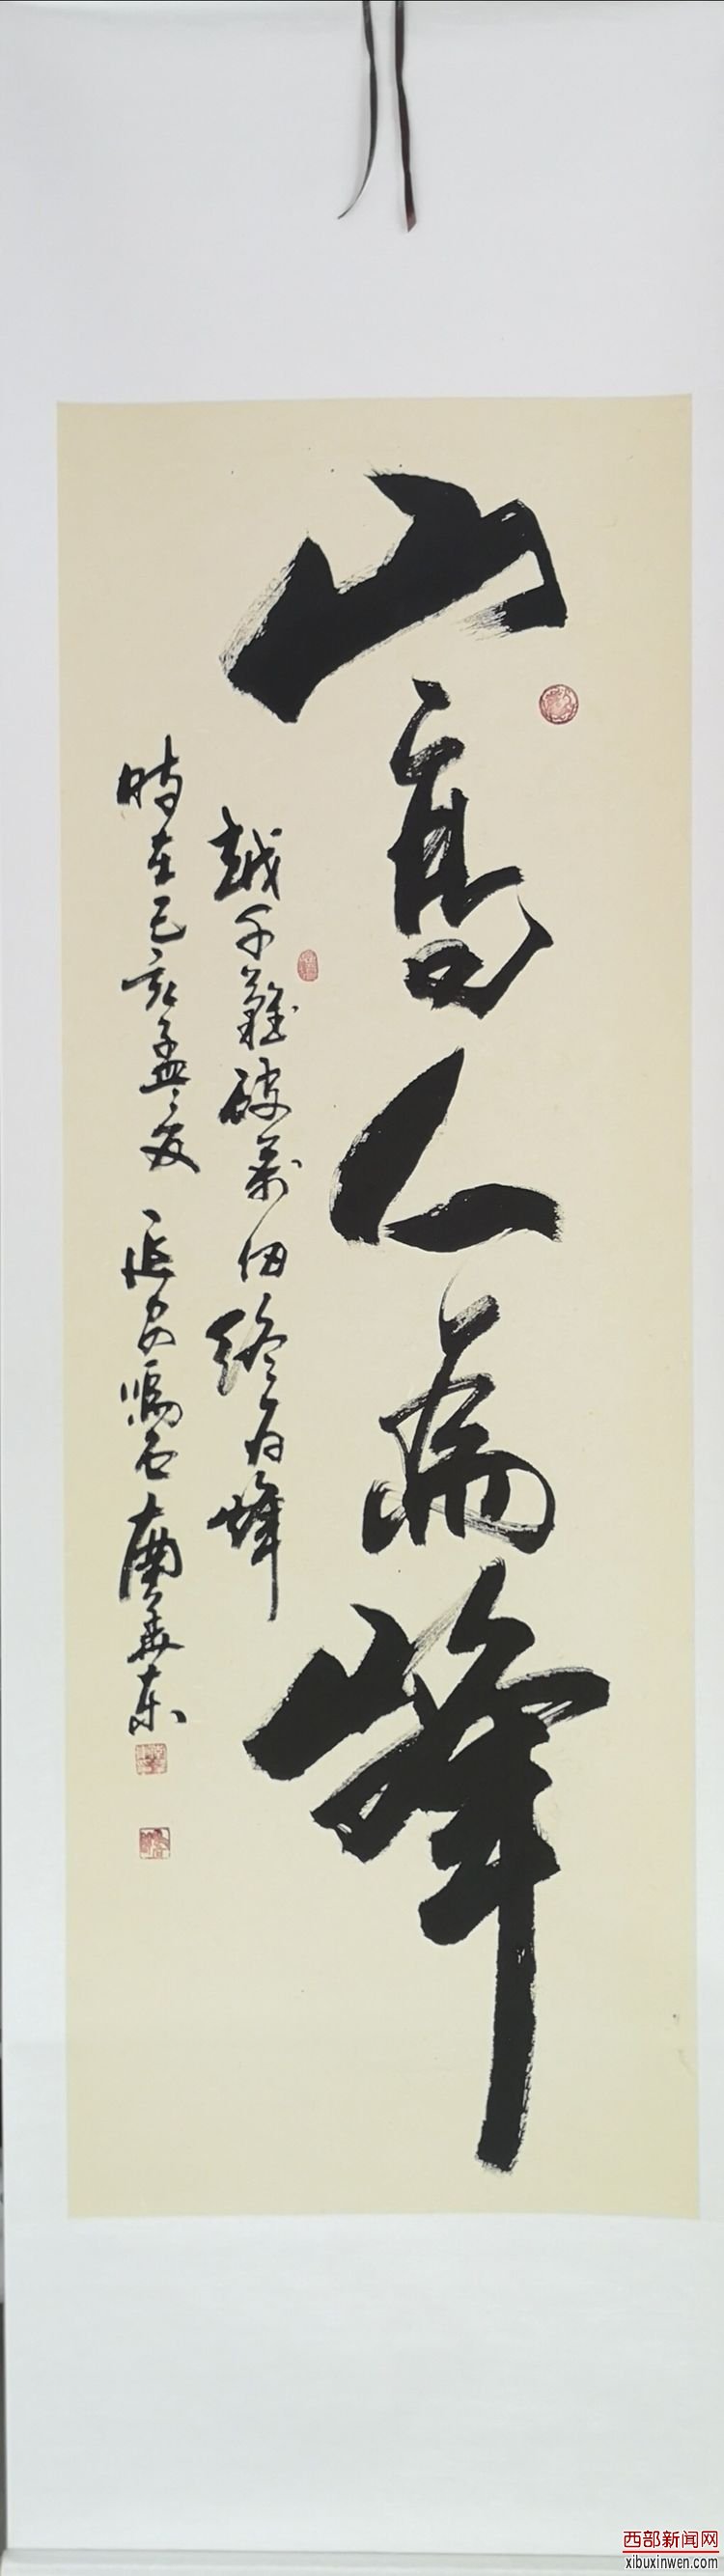 山高人为峰
越千難破萬仞终为峰
時在己亥孟夏 延安鳴石 蘭華东
西部新闻网
xibuxinwen.com